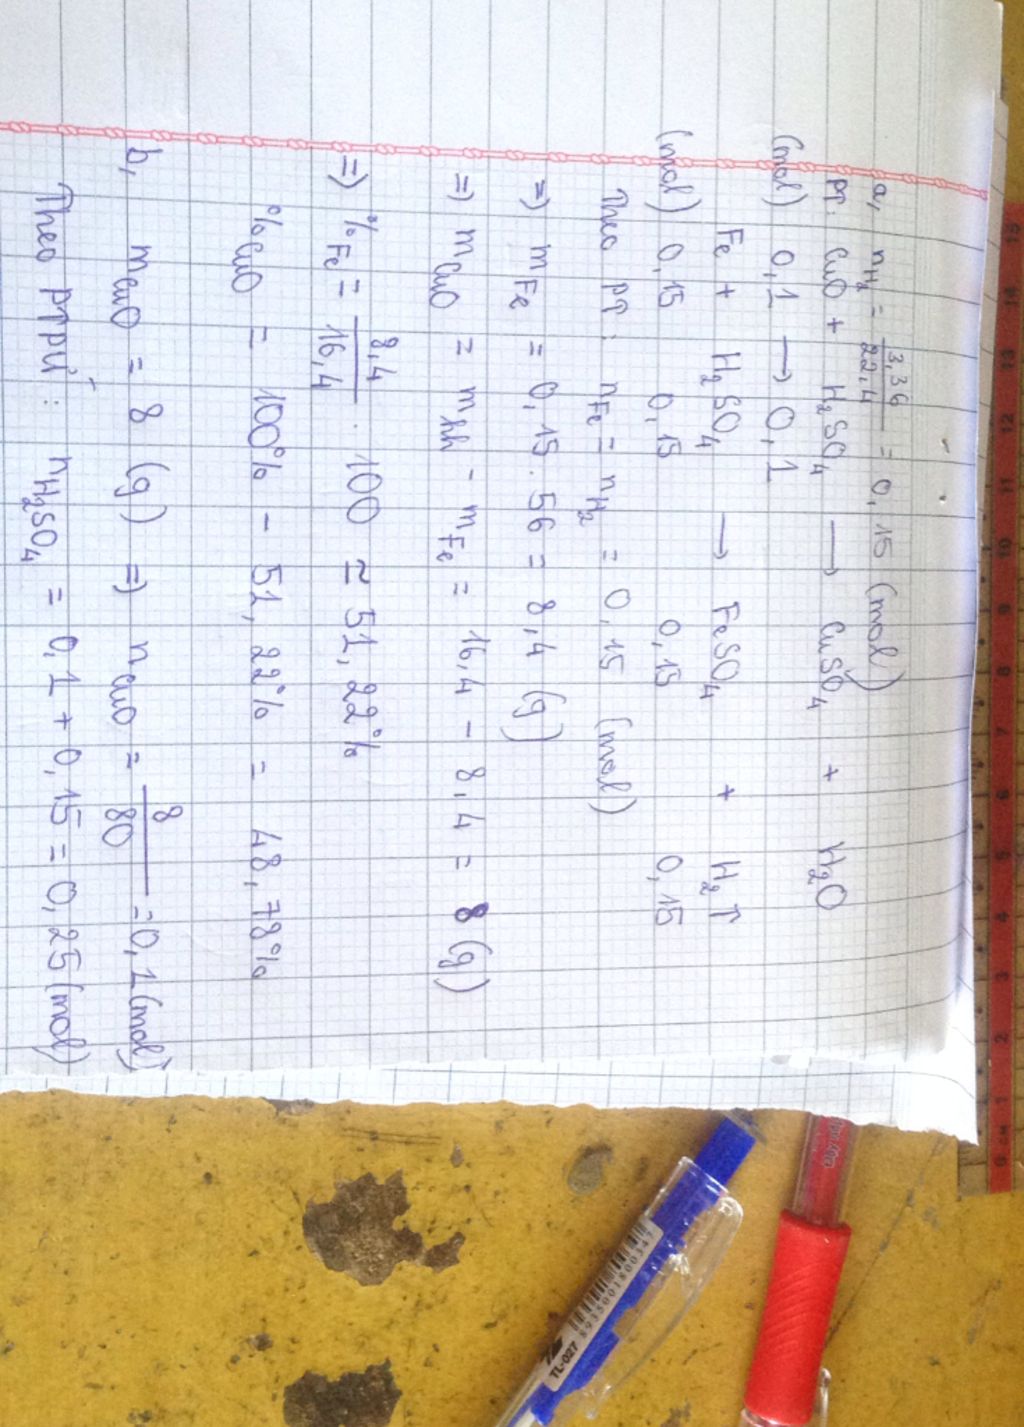 a, nH2 = 3,36/22,4 = 0,15 (mol)
PT: CuO + H2SO4 → CuSO4 + H2O
(mol) 0,1 → 0,1
Fe + H2SO4 → FeSO4 + H2↑
(mol) 0,15 0,15 0,15 0,15
Theo PT: nFe = nH2 = 0,15 (mol)
=) mFe = 0,15 . 56 = 8,4 (g)
=) mCuO = mhh - mFe = 16,4 - 8,4 = 8 (g)
=) %Fe = 8,4/16,4 . 100 ≃ 51,22%
%CuO = 100% - 51,22% = 48,78%
b, mCuO = 8 (g) =) nCuO = 8/80 = 0,1 (mol)
Theo PTPƯ: nH2SO4 = 0,1 + 0,15 = 0,25 (mol)
15 14 13 12 11 10 9 8 7 6 5 4 3 2 1 0 CM
TL-027 8935001800347